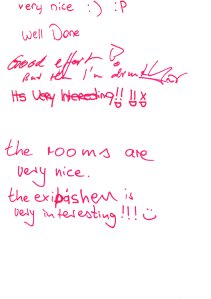 very nice :) :P
Well Done
Good effort!
But I'm drunk
Its Very Interesting!!
the rooms are
very nice.
the exipashen is
very interesting!!!